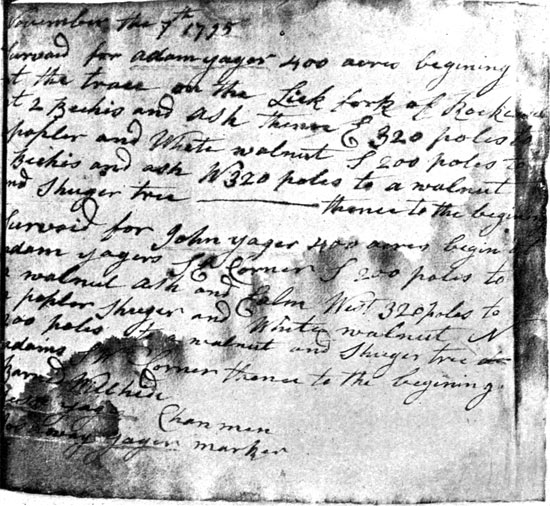 November the 7th 1795
Survaid for adam yager 400 acres begining
at the trace on the Lick fork of
at 2 Bechis and ash thence E 320 poles to
popler and White walnut S 200 poles to
Bechis and ash W 320 poles to a walnut
and Shuger tree thence to the begining
Survaid for John yager 400 acres begin
adam yagers S E Corner S 200 poles to
a walnut ash and Ealm West 320 poles to
a popler Shuger and White walnut N
200 poles to a walnut and Shuger tree at
adams S W Corner thence to the begining.
Chan men
yager marker